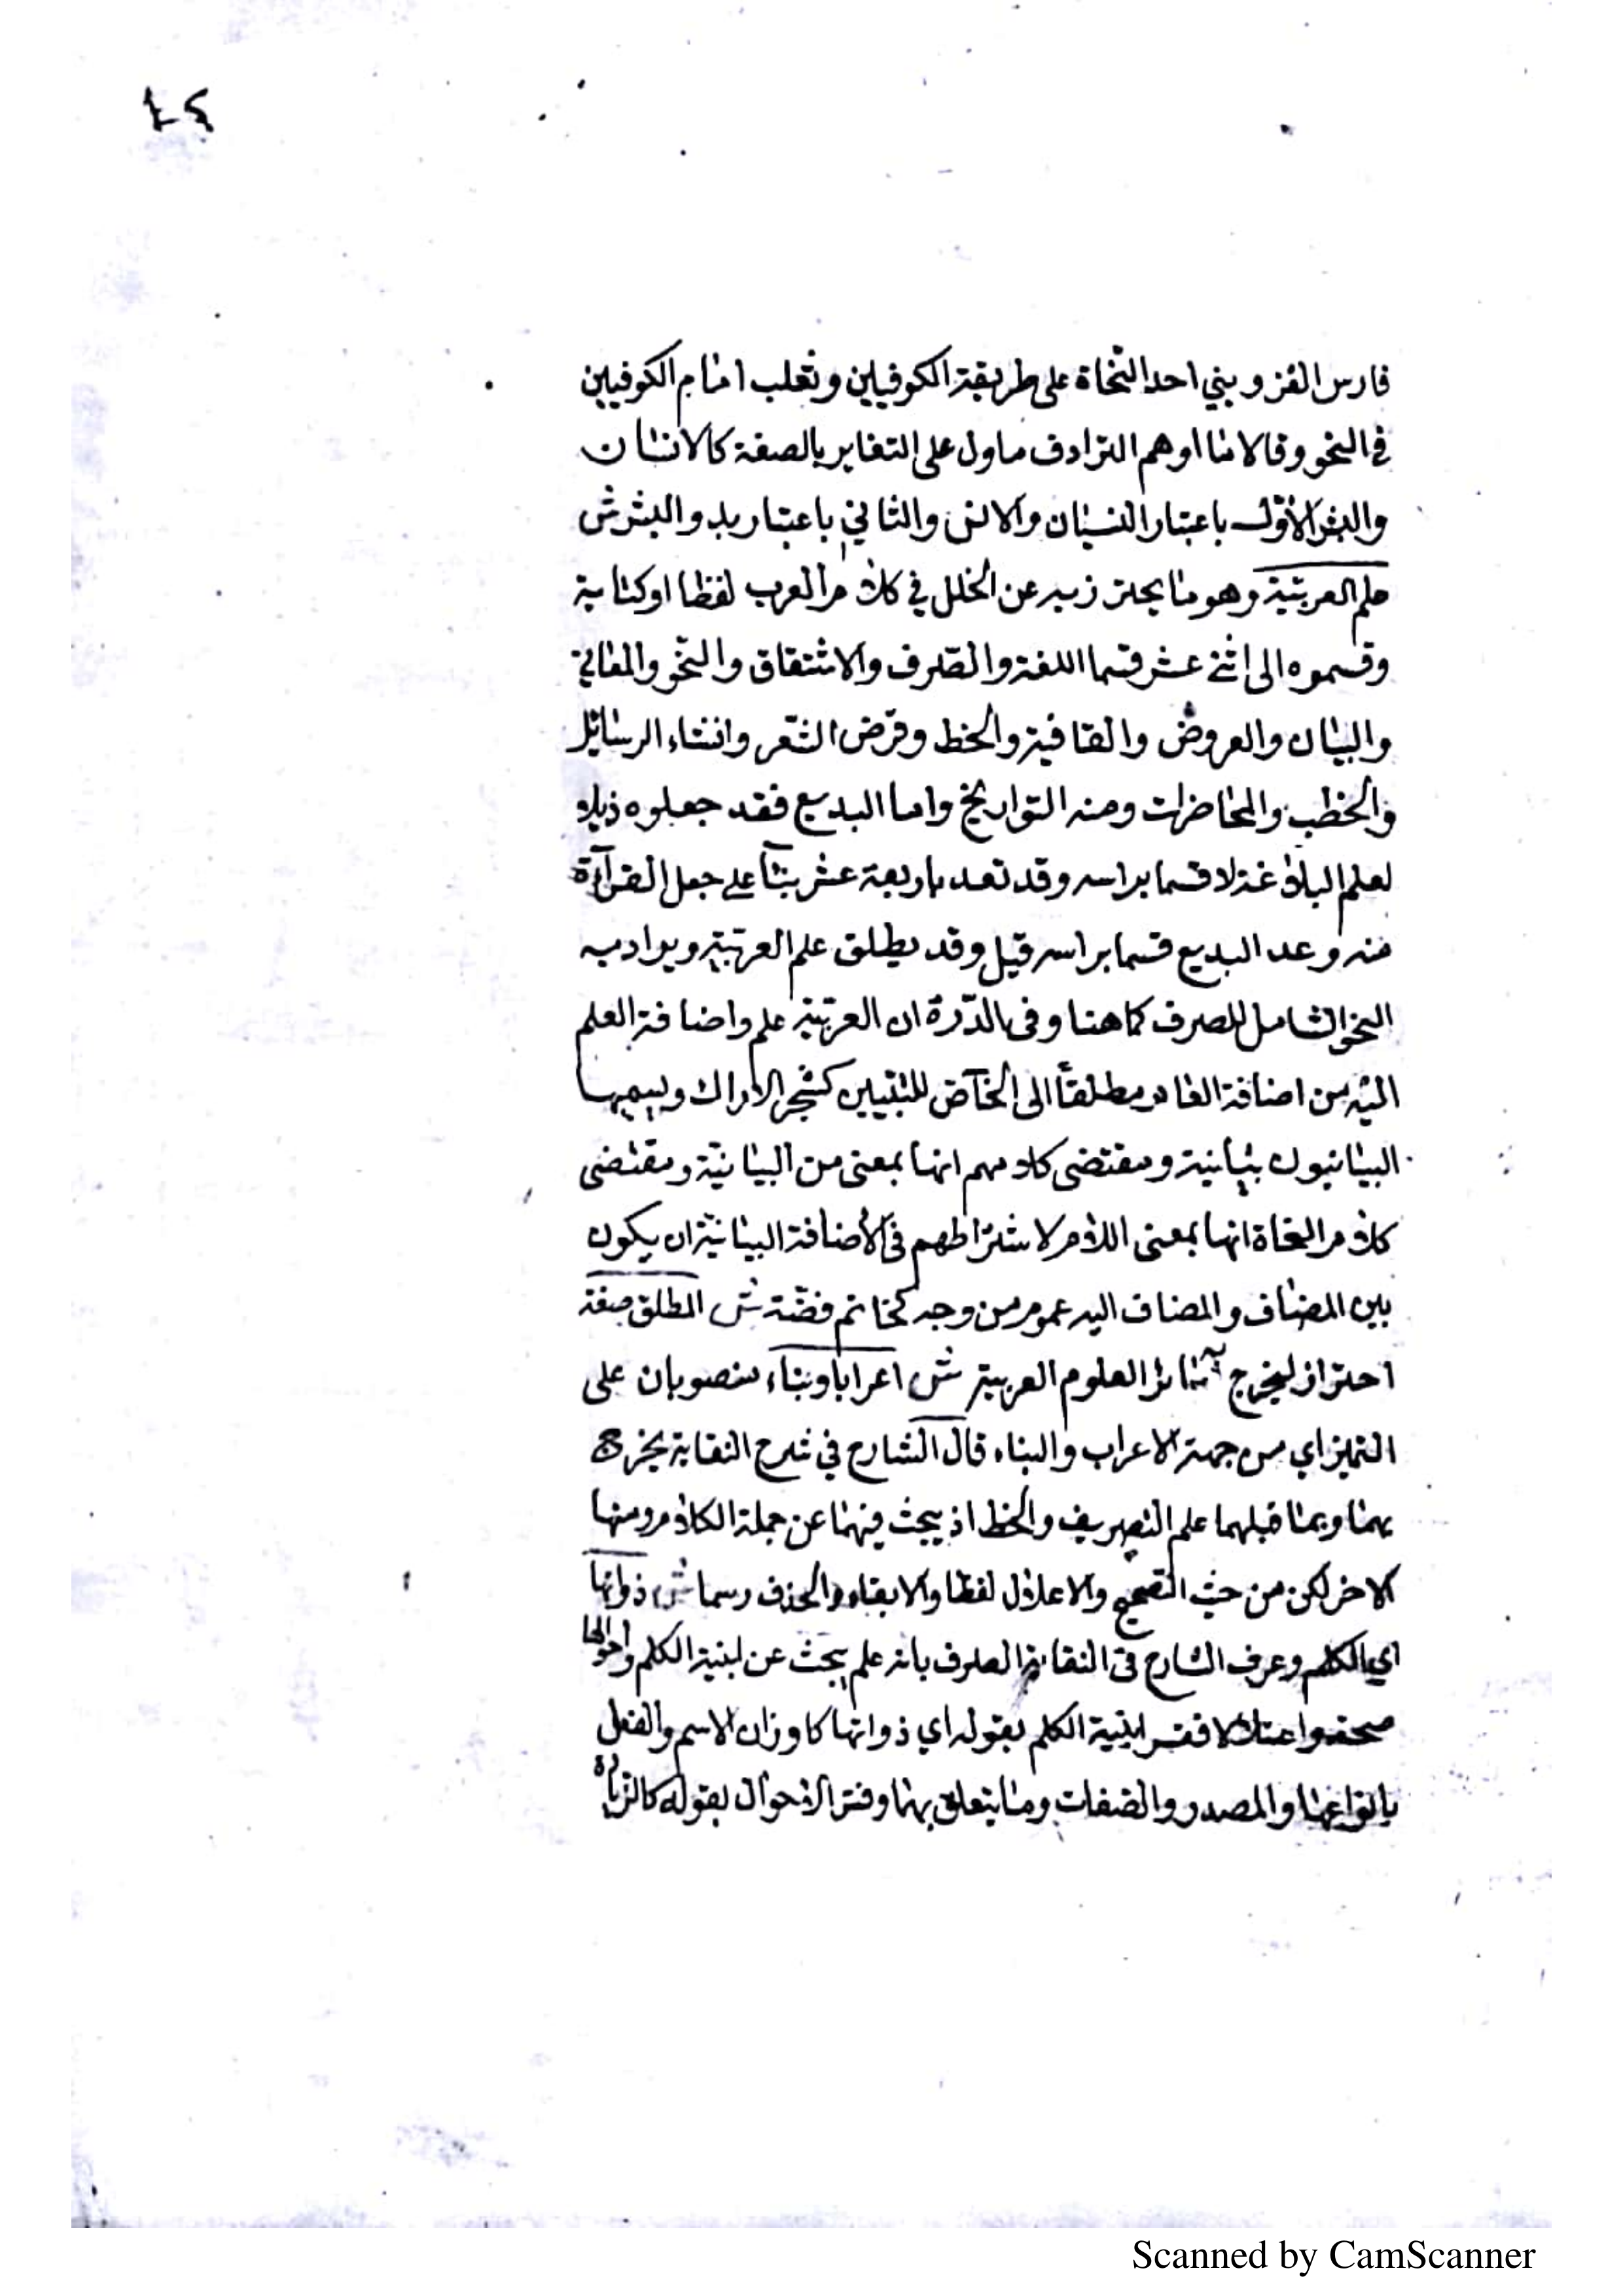 ٤٦
فارس القزويني احد النّحاة على طريقة الكوفيين وثعلب امام الكوفيين
في النحو وقالا ما اوهم الترادف ماول على التغاير بالصفة كالانسان
والبشر الاوّل باعتبار النسيان والانس والثاني باعتبار بدو البشر ش
علم العربيّة وهو ما يحترز به عن الخلل في كلام العرب لفظا او كتابة
وقسموه الى اثنى عشر قسما اللغة والصّرف والاشتقاق والنحّو والمعاني
والبيان والعروض والقافية والخط وقرض الشّعر وانشاء الرسائل
والخطب والمحاضرات ومنه التواريخ واما البديع فقد جعلوه ذيلا
لعلم البلاغة لا قسما براسه وقد تعد باربعة عشر بنآ على جعل القرآءة
منه وعد البديع قسما براسه قيل وقد يطلق علم العربيّة ويراد به
النحو الشامل للصرف كما هنا وفي الدّرة ان العربيّة علم واضافة العلم
اليه من اضافة العام مطلقاً الى الخآص للتبيين كشجر الاراك ويسميها
البيانيون بيانية ومقتضى كلامهم انها بمعنى من البيانيّة ومقتضى
كلام النحاة انها بمعنى اللام لاشتراطهم في الأضافة البيانيّة ان يكون
بين المضاف والمضاف اليه عموم من وجه كخاتم فضّة ش المطلق صفة
احتراز ليخرج به سائر العلوم العربية ش اعرابا وبناء منصوبان على
التميز اي من جهة الاعراب والبناء قال الشارح في شرح النقاية يخرج
بهما وبما قبلهما علم التصريف والخط اذ يبحث فيهما عن جملة الكلام ومنها
الاخر لكن من حيث التصحيح والاعلال لفظا والابقاء والحذف رسما ش ذواتها
اي الكلم وعرف الشارح في النقاية الصرف بانه علم يبحث عن ابنية الكلم واحوالها
صحة واعتلالا ففسر ابنية الكلم بقوله اي ذواتها كاوزان الاسم والفعل
بانواعهما والمصدر والصفات وما يتعلق بهما وفسّر الاحوال بقوله كالزيادة
Scanned by CamScanner